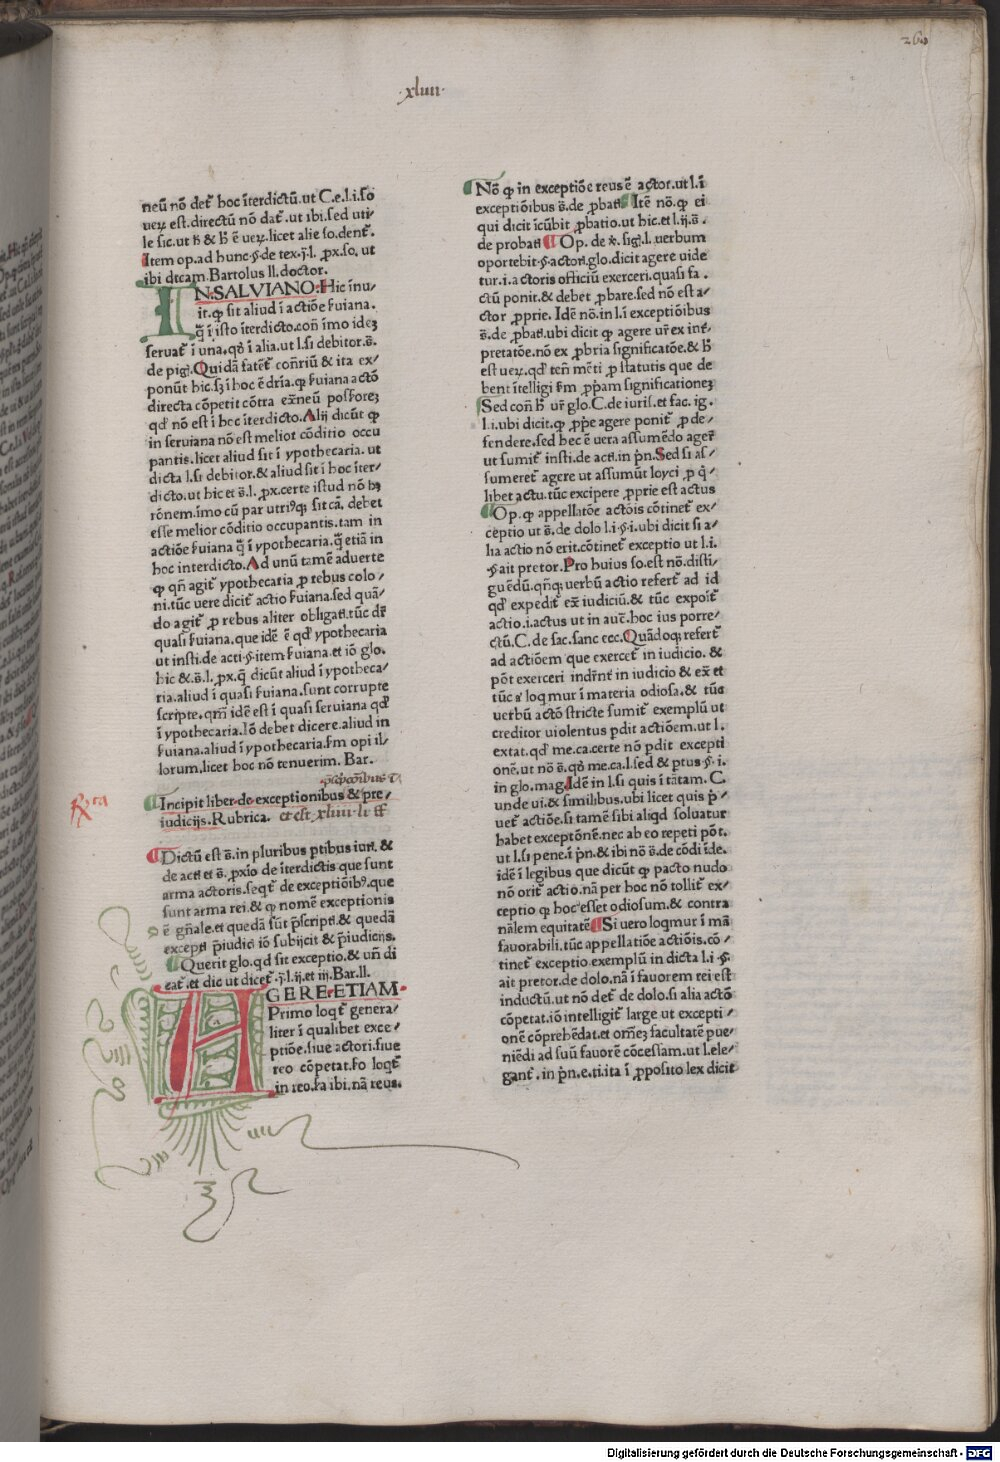 260
.xliiii.
neū nō det᷑ hoc īterdictū.ut C.e.l.i.ſo
ueꝝ eſt.directū nō dat᷑.ut ibi.ſed uti⸗
le ſic.ut ħ & ħ ē ueꝝ.licet alie ſo.dent᷑.
Item op.ad hunc.§.de tex.j.l. ꝓx.ſo. ut
ibi dicam Bartolus ll.doctor.
IN.SALVIANO.Hic īnu⸗
it.ꝙ ſit aliud ī actiōe ſuiana.
q̄ ī iſto īterdicto.con̄ imo ideꝫ
ſeruat᷑ ī una.qꝰ ī alia.ut l.ſi debitor.s̄.
de pig.Quidā fatēt᷑ con̄riū & ita ex⸗
ponūt hic.ſꝫ ī hoc ē dr̄ia.ꝙ ſuiana actō
directa cōpetit cōtra extr̄neū poſſoreꝫ
qd̓ nō eſt ī hoc īterdicto.Alij dicūt ꝙ
in ſeruiana nō eſt melior cōditio occu
pantis.licet aliud ſit ī ypothecaria. ut
dicta l.ſi debitor.& aliud ſit ī hoc īter⸗
dicto.ut hic et s̄.l. ꝓx.certe iſtud nō hꝫ
rōnem.imo cū par utriꝰqꝫ ſit cā. debet
eſſe melior cōditio occupantis.tam in
actiōe ſuiana q̄ ī ypothecaria.q̄ etiā in
hoc interdicto.Ad unū tamē aduerte
ꝙ qn̄ agit᷑ ypothecaria ꝓ rebus colo⸗
ni.tūc uere dicit᷑ actio ſuiana.ſed quā⸗
do agit᷑ ꝓ rebus aliter obligati.tūc dr̄
quaſi ſuiana.que idē ē qd̓ ypothecaria
ut inſti.de acti.§.item ſuiana.et iō glo.
hic &.s̄.l. ꝓx.q̄ dicūt aliud ī ypotheca⸗
ria.aliud ī quaſi ſuiana.ſunt corrupte
ſcripte.qm̄ idē eſt ī quaſi ſeruiana qd̓
ī ypothecaria.Iō debet dicere.aliud in
ſuiana.aliud ī ypothecaria.ſm opi il⸗
lorum.licet hoc nō tenuerim. Bar.
Incipit liber.de exceptionibus & pre⸗
iudicijs.Rubrica. et eſt xliiii li ff
Dictū eſt s̄.in pluribus ptibus iuri. &
de acti et s̄. ꝓxīo de īterdictis que ſunt
arma actoris.ſeqt᷑ de exceptiōibꝰ.que
ſunt arma rei.& ꝙ nomē exceptionis
ē gn̄ale.et quedā ſūt p̄ſcripti.& quedā
excepti p̄iudici iō ſubijcit & p̄iudicijs.
Querit glo.qd ſit exceptio.& un̄ di
cat᷑.et dic ut dicet᷑.j.l.ij.et iij.Bar.ll.
AGERE.ETIAM.
Primo loqt᷑ genera⸗
liter ī qualibet exce⸗
ptiōe.ſiue actori.ſiue
reo cōpetat.ſo loqt᷑
in reo.ſa ibi.nā reus.
Nō ꝙ in exceptiōe reus ē actor.ut l.i
exceptiōibus s̄.de ꝓbati. Itē nō.ꝙ ei
qui dicit īcūbit ꝓbatio.ut hic.et l.ij.s̄.
de probati Op. de v̓. ſigi.l.uerbum
oportebit.§.actori.glo.dicit agere uide
tur.i.actoris officiū exerceri.quaſi fa.
ctū ponit.& debet ꝓbare.ſed nō eſt a⸗
ctor ꝓprie. Idē nō.in l.i exceptiōibus
s̄.de ꝓbati.ubi dicit ꝙ agere ur̄ ex int̄⸗
pretatōe.nō ex ꝓbria ſignificatōe.& ħ
eſt ueꝝ.qd̓ ten̄ mēti ꝓ ſtatutis que de
bent ītelligi ſm ꝓpam ſignificationeꝫ
Sed con̄ ħ ur̄ glo.C.de iuriſ.et fac. ig.
l.i.ubi dicit.ꝙ ꝓpe agere ponit᷑ ꝓ de⸗
fendere.ſed hec ē uera aſſumēdo ager̄
ut ſumit᷑ inſti.de acti.in p̄n.Sed ſi aſ⸗
ſumeret᷑ agere ut aſſumūt loyci ꝓ q̓⸗
libet actu.tūc excipere ꝓprie eſt actus
Op.ꝙ appellatōe actōis cōtinet᷑ ex⸗
ceptio ut s̄.de dolo l.i.§.i.ubi dicit ſi a⸗
lia actio nō erit.cōtinet᷑ exceptio ut l.i.
§.ait pretor.Pro huius ſo.eſt nō.diſti⸗
guēdū.qn̄qꝫ uerbū actio refert᷑ ad id
qd̓ expedit᷑ ex̄ iudiciū.& tūc expoīt᷑
actio.i.actus ut in aut̄.hoc ius porre⸗
ctū.C.de ſac.ſanc ecc.Quādoqꝫ refert᷑
ad actiōem que exercet᷑ in iudicio. &
pōt exerceri indr̄nt᷑ in iudicio & ex̄ et
tūc aꝰ loqmur ī materia odioſa.& tūc
uerbū actō ſtricte ſumit᷑ exemplū ut
creditor uiolentus pdit actiōem.ut l.
extat.qd̓ me.ca.certe nō pdit excepti
onē.ut nō s̄.qꝰ me.ca.l.ſed & ptus §.i.
in glo.mag.Idē in l.ſi quis ī tātam. C.
unde ui.& ſimilibus.ubi licet quis p̓⸗
uet᷑ actiōe.ſi tamē ſibi aliqd ſoluatur
habet exceptōnē.nec ab eo repeti pōt.
ut l.ſi pene.ī p̄n.& ibi nō s̄.de cōdi īde.
idē ī legibus que dicūt ꝙ pacto nudo
nō orit᷑ actio.nā per hoc nō tollit᷑ ex⸗
ceptio ꝙ hoc eſſet odioſum.& contra
nālem equitatē Si uero loqmur ī mā
fauorabili.tūc appellatiōe actiōis.cō⸗
tinet᷑ exceptio exemplū in dicta l.i §.
ait pretor.de dolo.nā ī fauorem rei eſt
inductū.ut nō det᷑ de dolo.ſi alia actō
cōpetat.iō intelligit᷑ large ut excepti⸗
onē cōprehēdat.et omeꝫ facultatē pue⸗
niēdi ad ſuū fauorē cōceſſam.ut l.ele⸗
gant᷑. in p̄n.e.ti.ita ī ꝓpoſito lex dicit
Digitalisierung gefördert durch die Deutsche Forschungsgemeinschaft - DFG